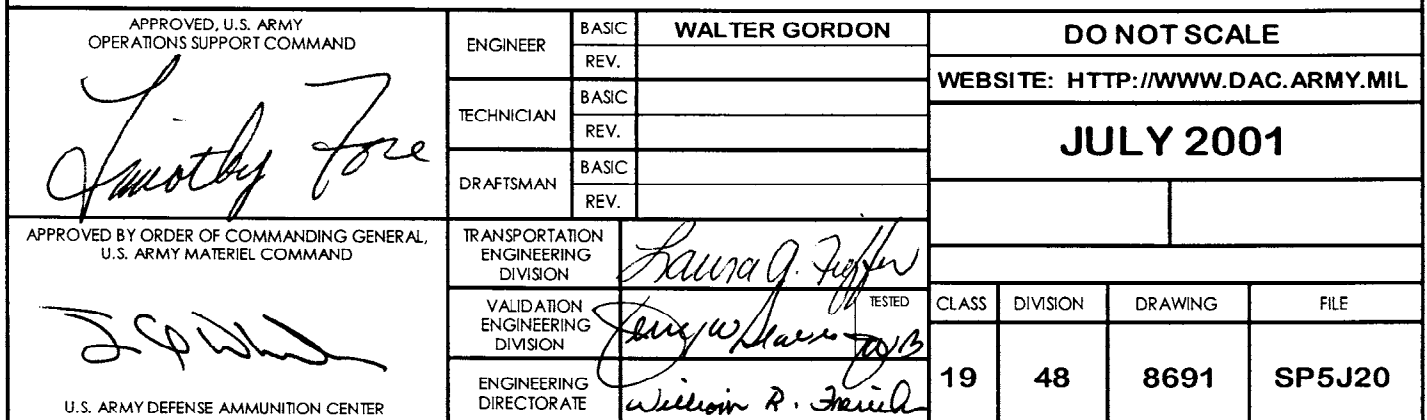 APPROVED, U.S. ARMY
OPERATIONS SUPPORT COMMAND
Timothy Fore
APPROVED BY ORDER OF COMMANDING GENERAL,
U.S. ARMY MATERIEL COMMAND
U.S. ARMY DEFENSE AMMUNITION CENTER
ENGINEER
BASIC
WALTER GORDON
REV.
TECHNICIAN
BASIC
REV.
DRAFTSMAN
BASIC
REV.
TRANSPORTATION
ENGINEERING
DIVISION
Laura A.
VALIDATION
ENGINEERING
DIVISION
Jerry W
TESTED
ENGINEERING
DIRECTORATE
William R.
DO NOT SCALE
WEBSITE: HTTP://WWW.DAC.ARMY.MIL
JULY 2001
CLASS DIVISION DRAWING FILE
19 48 8691 SP5J20